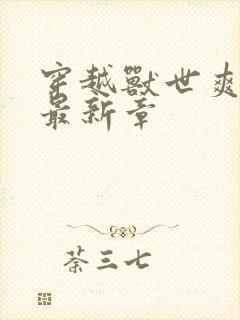 穿越獸世爽
最新章
荼三七